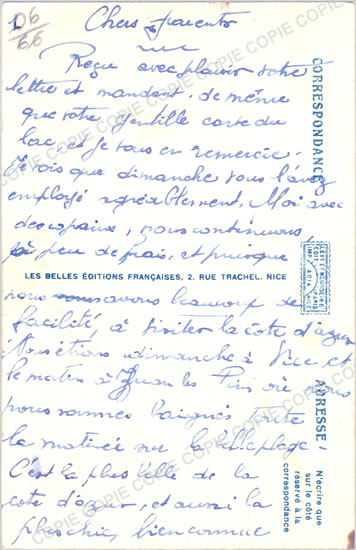 06
66
Chers parents
Reçu avec plaisir votre
lettre et mandat. de même
que votre gentille carte du
lac, et je vous en remercie.
Je vois que dimanche vous l'avez
employé agréablement. Moi avec
des copains, nous continuons
à peu de frais, et puisque
LES BELLES ÉDITIONS FRANÇAISES, 2, RUE TRACHEL, NICE
nous avons beaucoup de
facilité, à visiter la côte d'azur
Nous étions dimanche à Nice, et
le matin à Juan les Pins où nous
nous sommes baignés toute
la matinée sur la plage -
C'est la plus belle de la
côte d'azur, et aussi la
plus chic, bien connue
CORRESPONDANCE
ADRESSE
N'écrire que
sur le côté
réservé à la
correspondance
COPIE COPIE COPIE COPIE